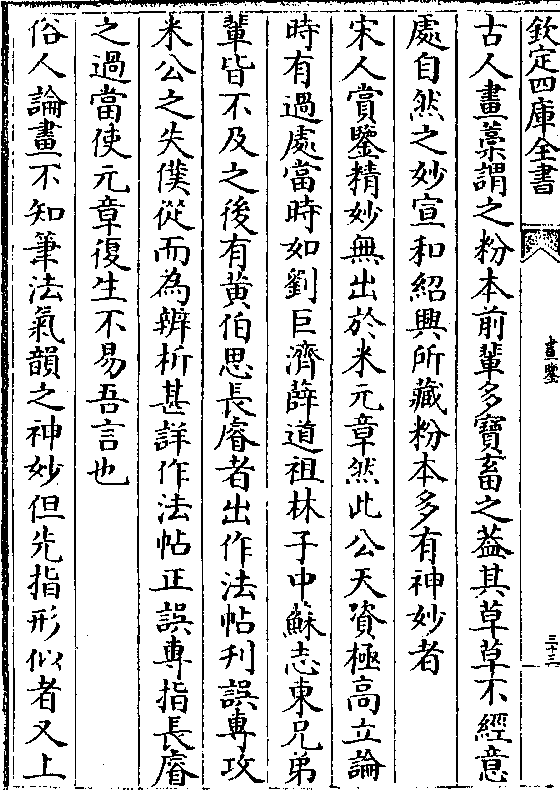 欽定四庫全書
畫鑒
三十三
古人畫藁謂之粉本前輩多寶畜之葢其草草不經意
處自然之妙宣和紹興所藏粉本多有神妙者
宋人賞鑒精妙無出於米元章然此公天資極高立論
時有過處當時如劉巨濟薛道祖林子中蘇志東兄弟
輩皆不及之後有黄伯思長睿者出作法帖刋誤專攻
米公之失僕從而為辨析甚詳作法帖正誤專指長睿
之過當使元章復生不易吾言也
俗人論畫不知筆法氣韻之神妙但先指形似者又上